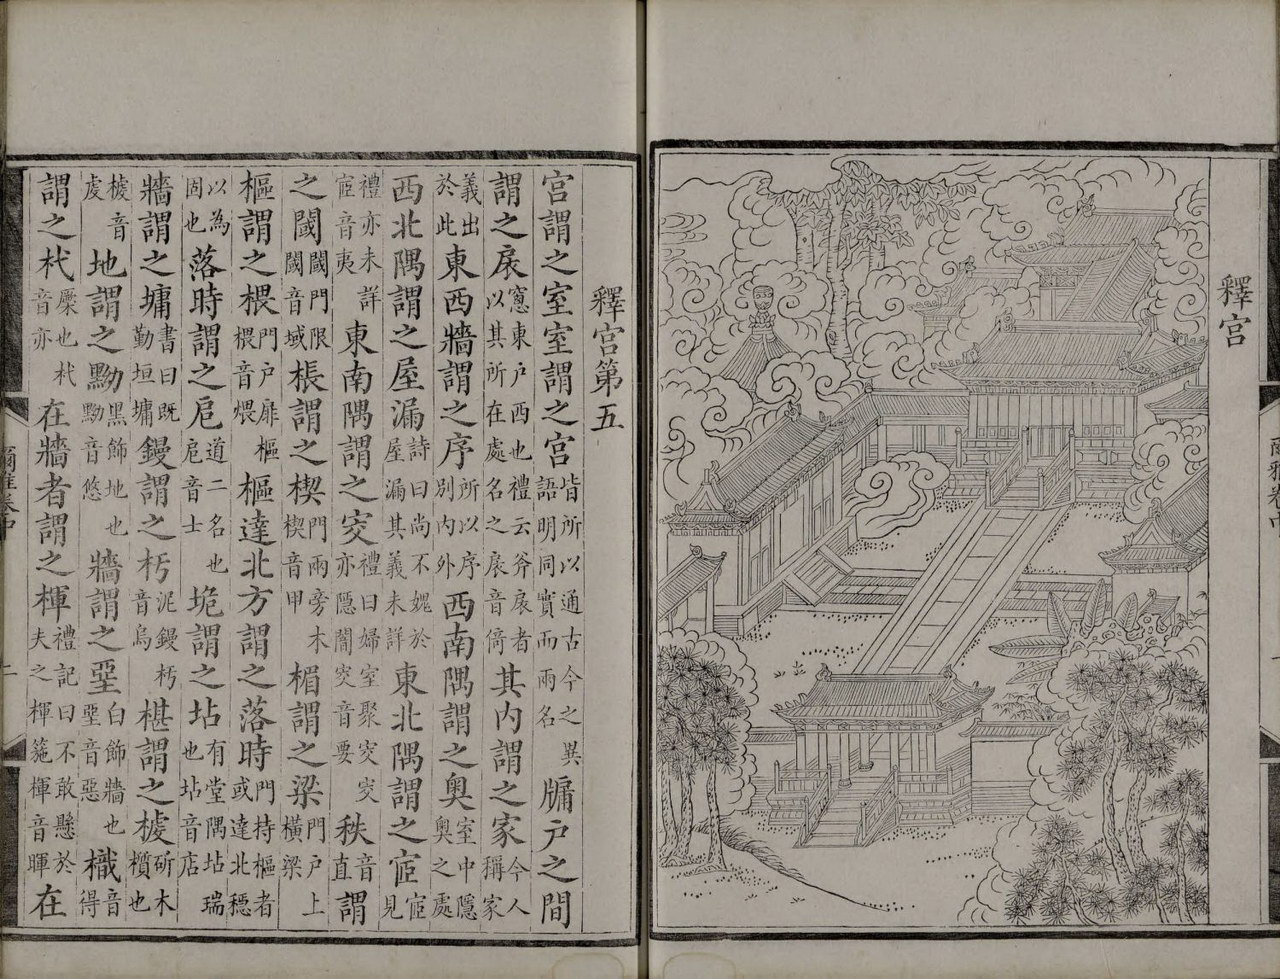 釋宮
釋宮第五
宮謂之室室謂之宮皆所以通古今之異語明同實而兩名牖戶之間
謂之扆窻東戶西也禮云斧扆者以其所在處名之扆音倚其内謂之家今人稱家
義出於此東西牆謂之序所以序別内外西南隅謂之奧室中隱奧之處
西北隅謂之屋漏詩曰尚不媿於屋漏其義未詳東北隅謂之宧宧見
禮亦未詳宧音夷東南隅謂之穾禮曰婦室聚穾穾亦隱闇穾音要秩音直謂
之閾閾門限閾音域棖謂之楔門兩旁木楔音甲楣謂之梁門戶上橫梁
樞謂之椳門戶扉樞椳音煨樞達北方謂之落時門持樞者或達北穩
以為固也落時謂之戺道二名也戺音士垝謂之坫有堂隅坫瑞也坫音店
牆謂之墉書曰既勤垣墉鏝謂之杇泥鏝杇音烏椹謂之榩斫木櫍也
榩音虔地謂之黝黑飾地也黝音悠牆謂之堊白飾牆也堊音惡樴音得
謂之杙橜也杙音亦在牆者謂之楎禮記曰不敢懸於夫之楎箷楎音暉在